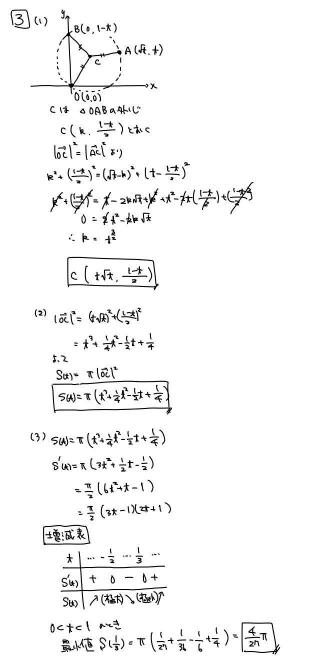 3 (1)
y
B(0, 1-t)
A(√t, t)
C
x
O(0,0)
Cは △OABの外心
C(k, (1-t)/2) とおく
|OC|² = |AC|² より
k² + ((1-t)/2)² = (√t-k)² + (t - (1-t)/2)²
k² + ((1-t)/2)² = t - 2k√t + k² + t² - 2t((1-t)/2) + ((1-t)/2)²
0 = 2t² - 2k√t
∴ k = t^(3/2)
C(t√t, (1-t)/2)
(2) |OC|² = (t√t)² + ((1-t)/2)²
= t³ + 1/4 t² - 1/2 t + 1/4
よって
S(t) = π|OC|²
S(t) = π(t³ + 1/4 t² - 1/2 t + 1/4)
(3) S(t) = π(t³ + 1/4 t² - 1/2 t + 1/4)
S'(t) = π(3t² + 1/2 t - 1/2)
= π/2 (6t² + t - 1)
= π/2 (3t-1)(2t+1)
増減表
t … -1/2 … 1/3 …
S'(t) + 0 - 0 +
S(t) ↗ (極大) ↘ (極小) ↗
0<t<1 のとき
最小値 S(1/3) = π(1/27 + 1/36 - 1/6 + 1/4) = 4/27 π